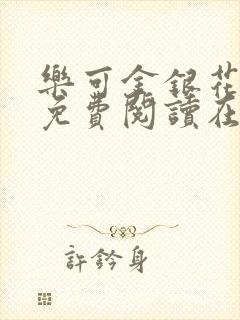 樂可金銀花
免費閱讀在
許鈐身